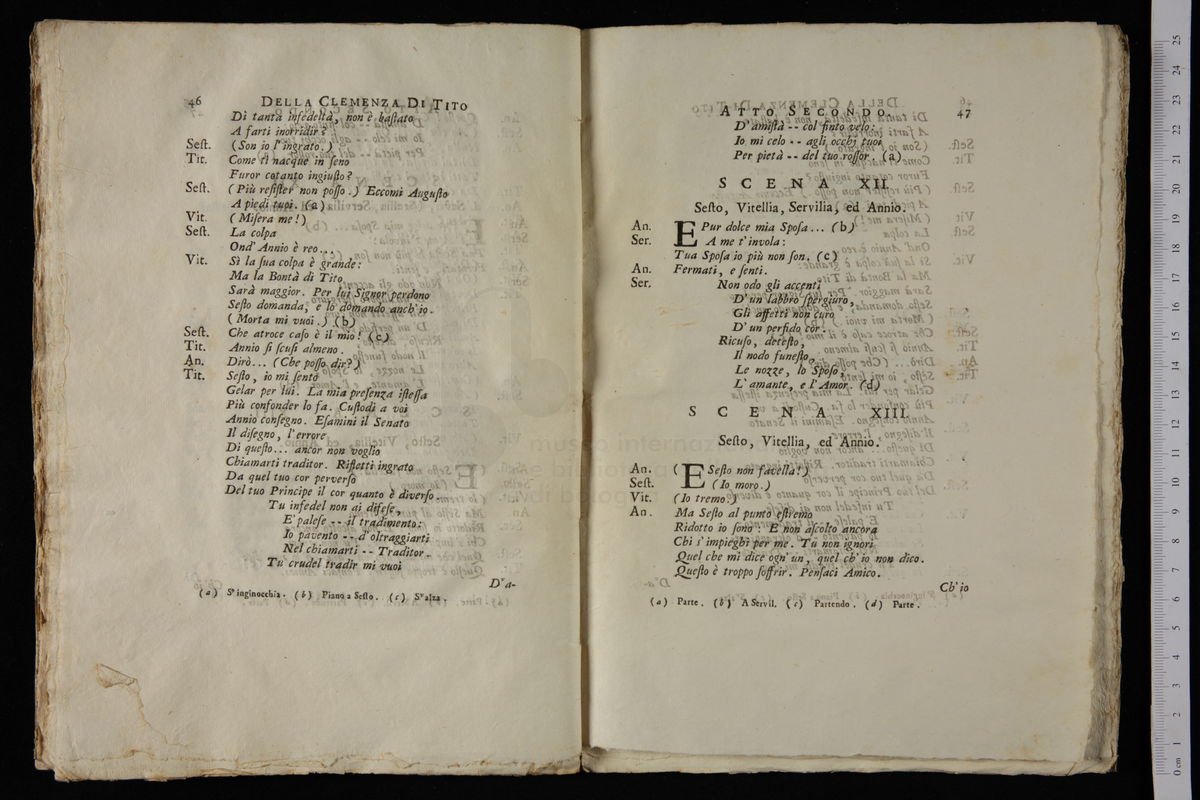 46 DELLA CLEMENZA DI TITO
Di tanta infedeltà, non è bastato
A farti inorridir?
Sest. (Son io l'ingrato.)
Tit. Come ti nacque in seno
Furor cotanto ingiusto?
Sest. (Più resister non posso.) Eccomi Augusto
A piedi tuoi. (a)
Vit. (Misera me!)
Sest. La colpa
Ond' Annio è reo...
Vit. Sì la sua colpa è grande:
Ma la Bontà di Tito
Sarà maggior. Per lui Signor perdono
Sesto domanda, e lo domando anch'io.
(Morta mi vuoi.) (b)
Sest. Che atroce caso è il mio! (c)
Tit. Annio si scusi almeno.
An. Dirò... (Che posso dir?)
Tit. Sesto, io mi sento
Gelar per lui. La mia presenza istessa
Più confonder lo fa. Custodi a voi
Annio consegno. Esamini il Senato
Il disegno, l'errore
Di questo... ancor non voglio
Chiamarti traditor. Rifletti ingrato
Da quel tuo cor perverso
Del tuo Principe il cor quanto è diverso.
Tu infedel non ai difese,
E' palese -- il tradimento:
Io pavento -- d'oltraggiarti
Nel chiamarti -- Traditor.
Tu crudel tradir mi vuoi
D'a-
(a) S'inginocchia. (b) Piano a Sesto. (c) S'alza.
ATTO SECONDO. 47
D'amistà -- col finto velo:
Io mi celo -- agli occhi tuoi
Per pietà -- del tuo rossor. (a)
SCENA XII.
Sesto, Vitellia, Servilia, ed Annio.
An. E Pur dolce mia Sposa... (b)
Ser. A me t'invola:
Tua Sposa io più non son. (c)
An. Fermati, e senti.
Ser. Non odo gli accenti
D'un labbro spergiuro,
Gli affetti non curo
D'un perfido cor:
Ricuso, detesto,
Il nodo funesto,
Le nozze, lo Sposo,
L'amante, e l'Amor. (d)
SCENA XIII.
Sesto, Vitellia, ed Annio.
An. (E Sesto non favella!)
Sest. (Io moro.)
Vit. (Io tremo.)
An. Ma Sesto al punto estremo
Ridotto io sono: E non ascolto ancora
Chi s'impieghi per me. Tu non ignori
Quel che mi dice ogn'un, quel ch'io non dico.
Questo è troppo soffrir. Pensaci Amico.
Ch'io
(a) Parte. (b) A Servil. (c) Partendo. (d) Parte.